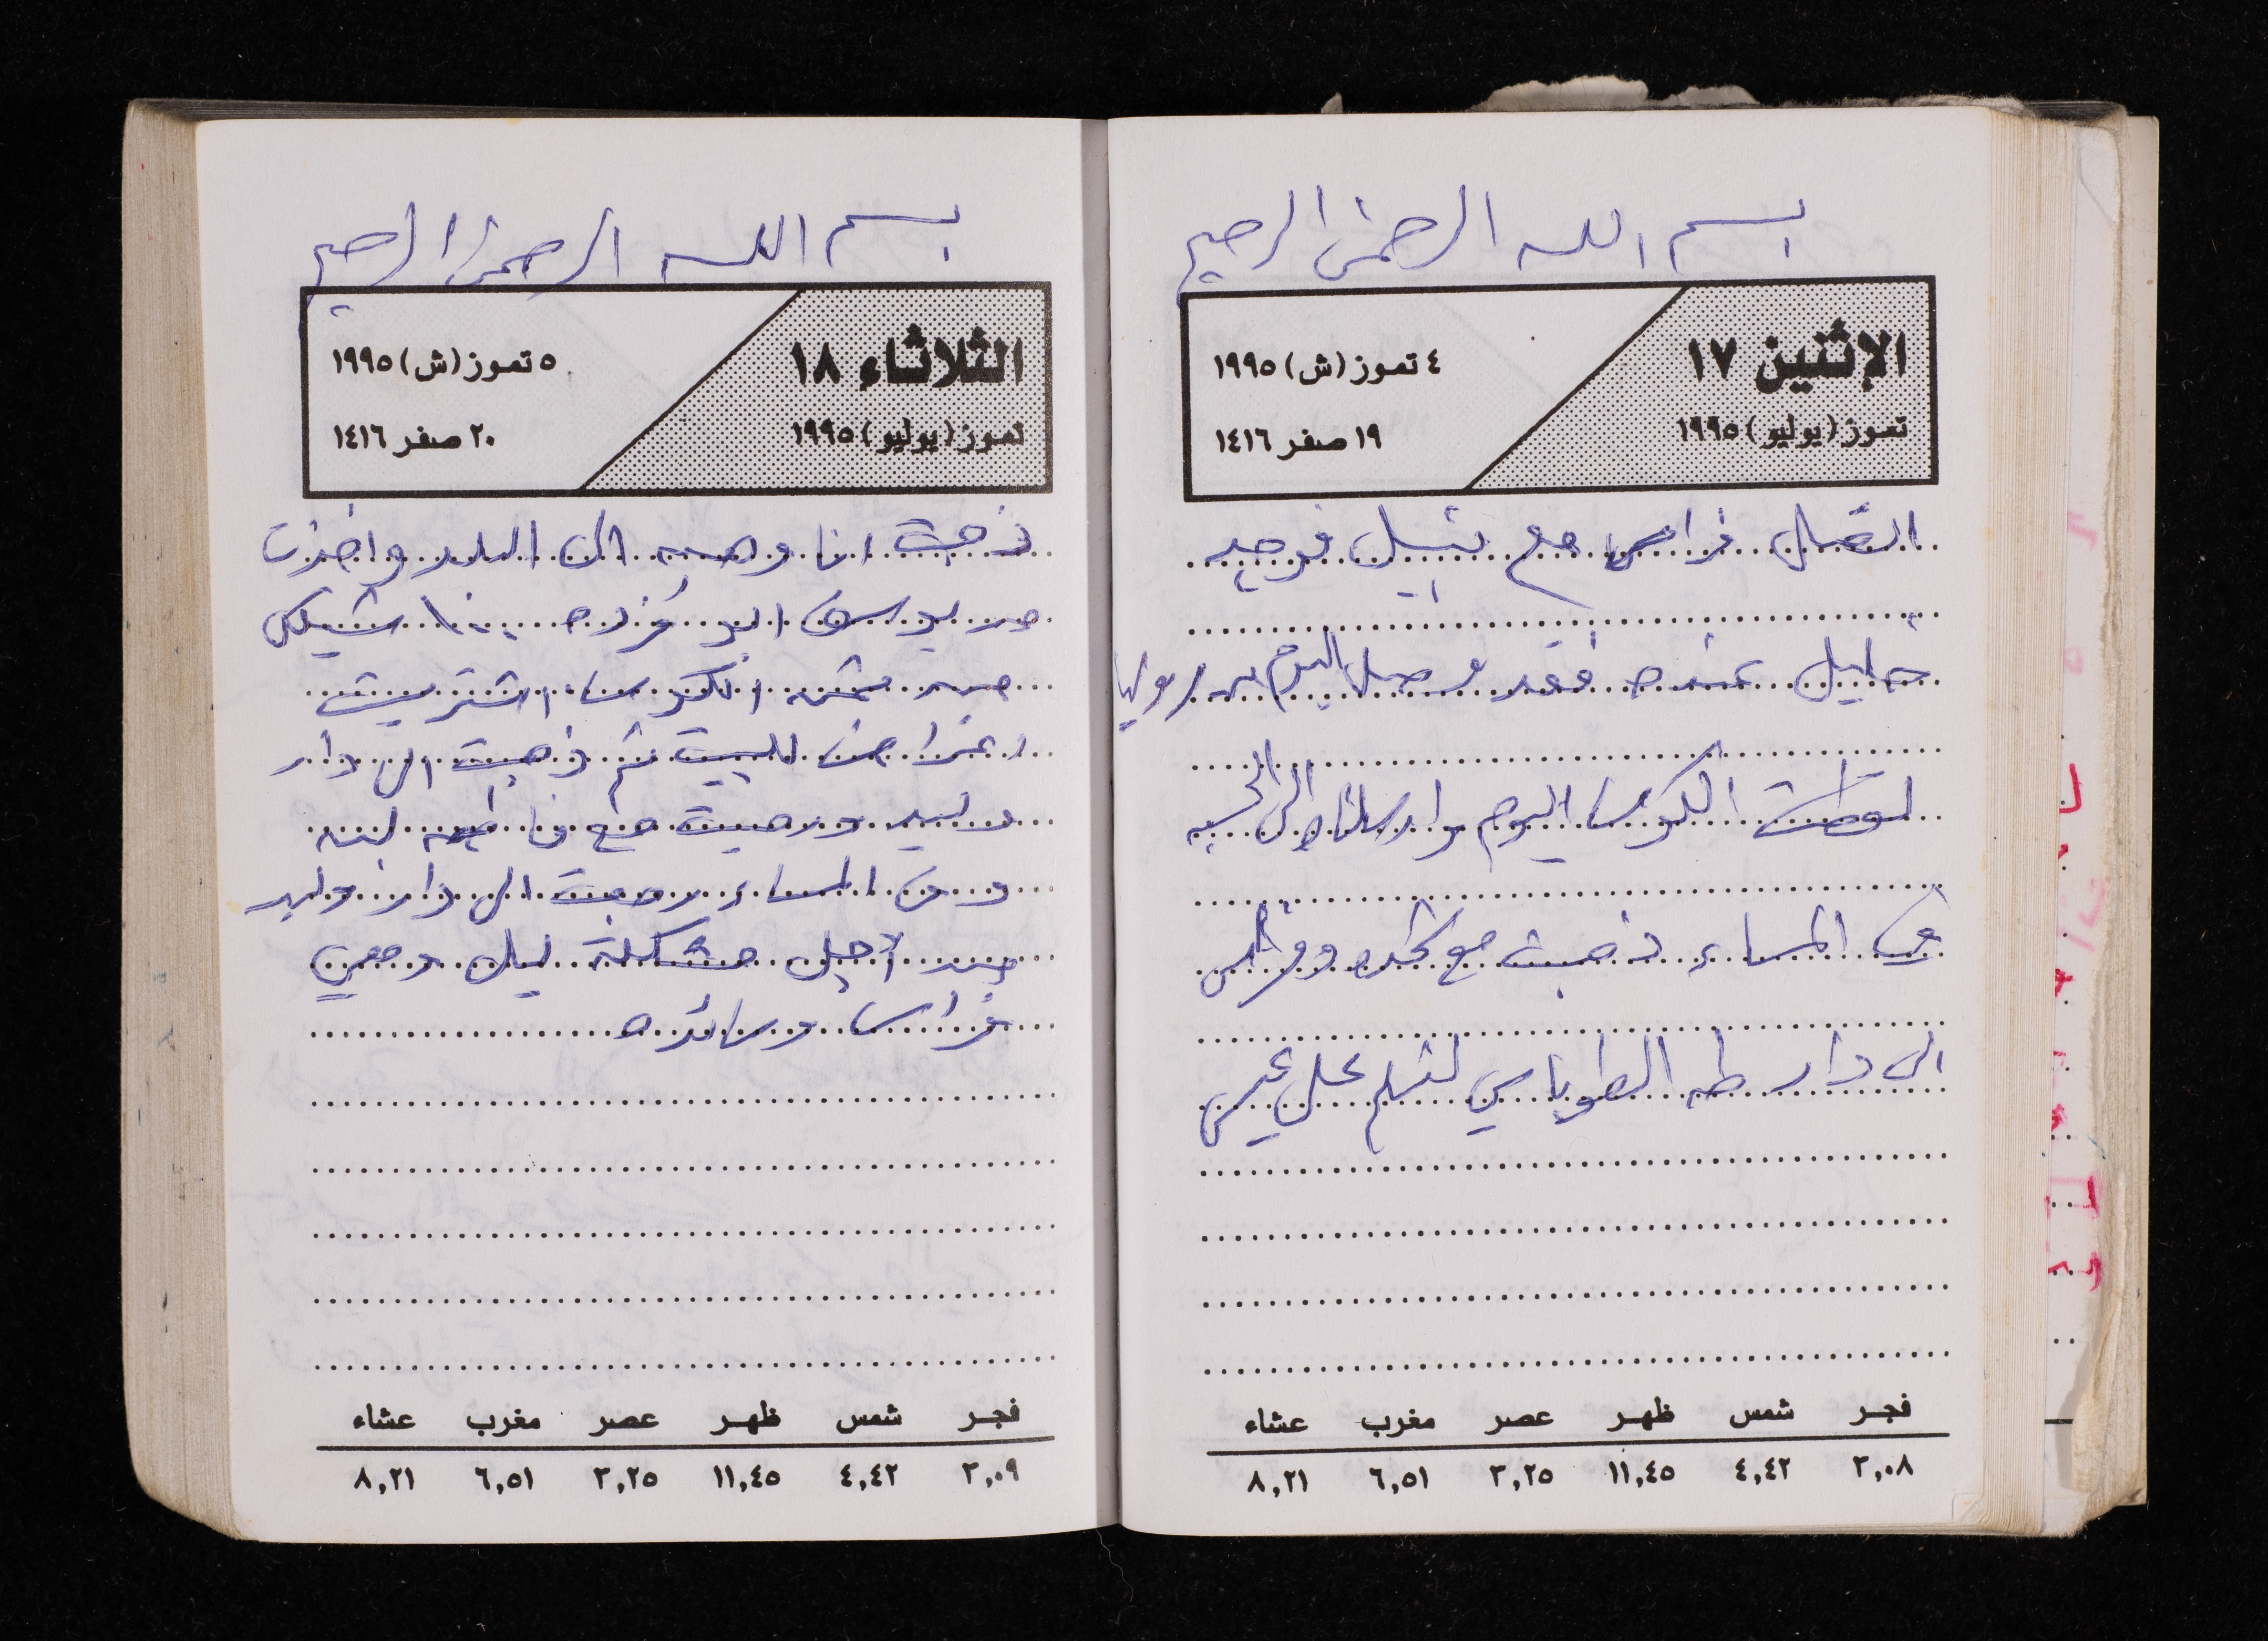 بسم الله الرحمن الرحيم
الإثنين ١٧
تموز (يوليو) ١٩٩٥
٤ تموز (ش) ١٩٩٥
١٩ صفر ١٤١٦
اتصل فراس مع نبيل فوجد
خليل عنده فقد وصل اليوم من
الكوسا اليوم وارسلناه الى الحسبه
في المساء ذهبت مع وفراس
الى دار طه الطوباسي لنسلم على
فجر شمس ظهر عصر مغرب عشاء
٣,٠٨ ٤,٤٢ ١١,٤٥ ٣,٢٥ ٦,٥١ ٨,٢١
بسم الله الرحمن الرحيم
الثلاثاء ١٨
تموز (يوليو) ١٩٩٥
٥ تموز (ش) ١٩٩٥
٢٠ صفر ١٤١٦
ذهبت انا وهبه الى البلد واخذت
من يوسف ابو فرده ١٠٠ شيكل
من ثمن الكوسا اشتريت
اغراض للبيت ثم ذهبت الى دار
وليد ورحبت مع فاطمه
وفي المساء رجعت الى دار وليد
من اجل مشكلة ليل ومعي
فراس ورائده
فجر شمس ظهر عصر مغرب عشاء
٣,٠٩ ٤,٤٢ ١١,٤٥ ٣,٢٥ ٦,٥١ ٨,٢١